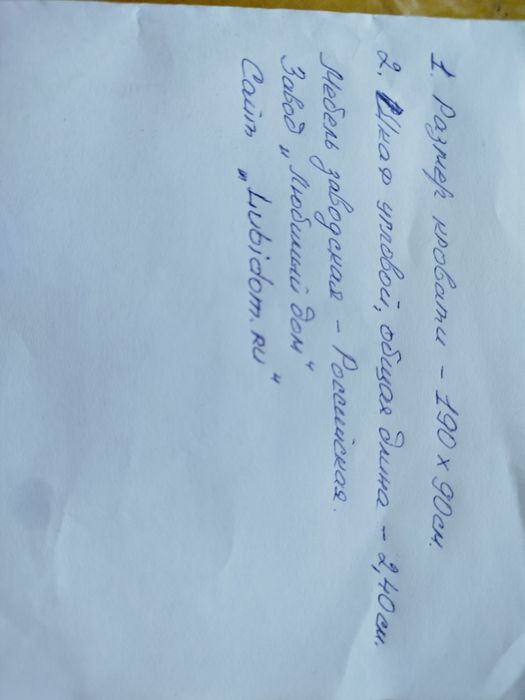 1. Размер кровати - 190 х 90 см.
2. Шкаф угловой, общая длина - 2,40 см.
Мебель заводская - Российская.
Завод „Любимый дом“
Сайт „Lubidom.ru“